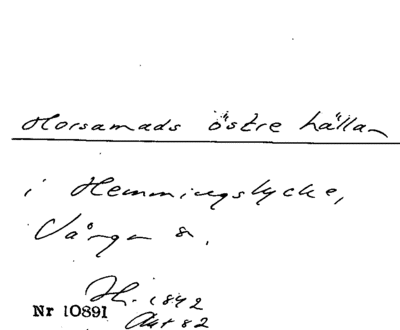 Horsamads östre hälla
i Hemmingslycke,
Vånga s.
H. 1842
Akt 82
Nr 10891